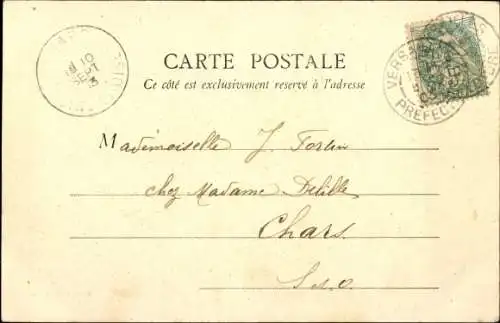 VERSAILLES
PREFECTURE
10
SEPT
CARTE POSTALE
Ce côté est exclusivement reservé à l'adresse
Mademoiselle J. Fortin
chez Madame Delille
Chars
S. et. O.